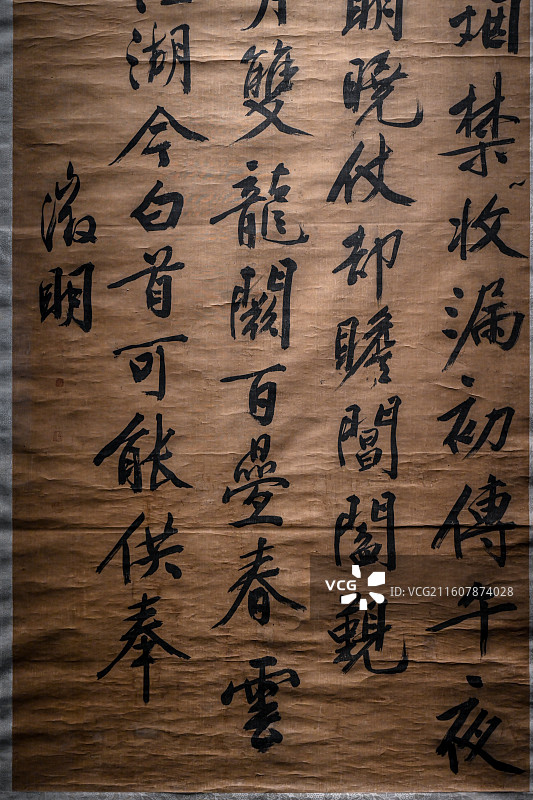 禁收漏初傳午夜
明曉仗却瞻閶闔覲
雙龍闕百疊春雲
江湖今白首可能供奉
徵明
VCG
VCG ID:VCG211607874028